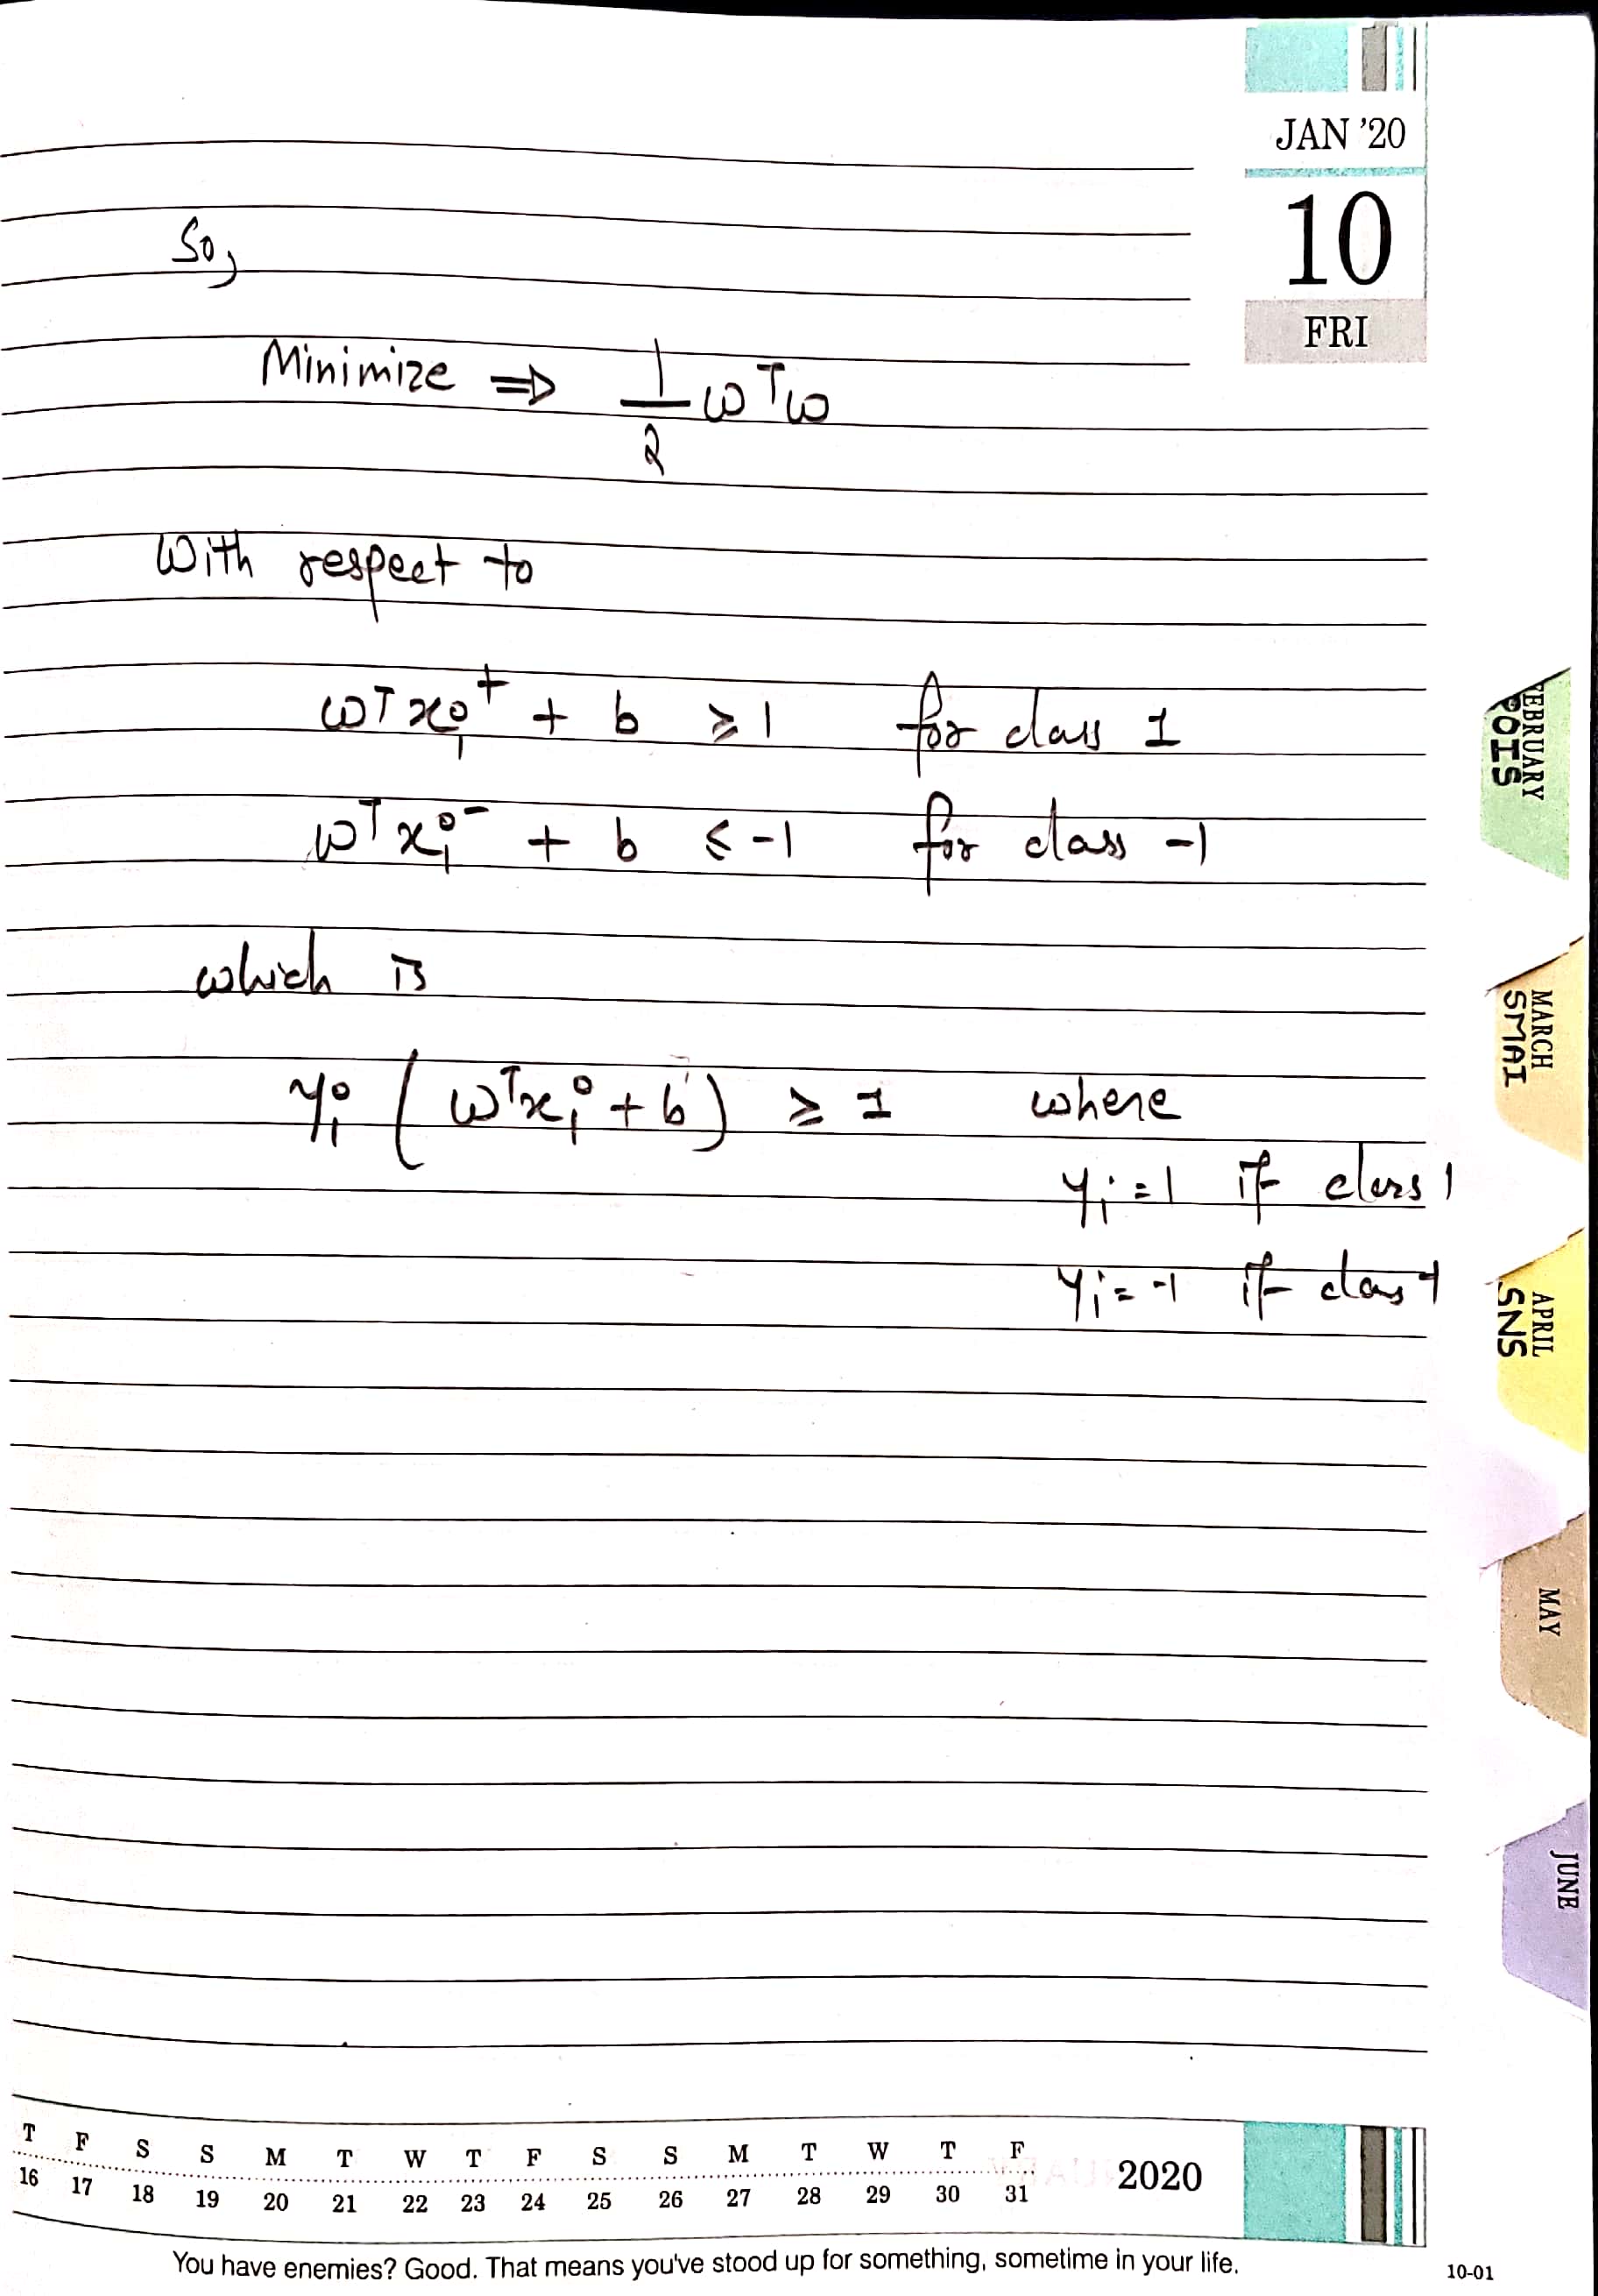 JAN '20
10
FRI
So,
Minimize ⇒ 1/2 ωᵀω
With respect to
ωᵀxᵢ⁺ + b ≥ 1 for class 1
ωᵀxᵢ⁻ + b ≤ -1 for class -1
which is
yᵢ (ωᵀxᵢ + b) ≥ 1 where
yᵢ = 1 if class 1
yᵢ = -1 if class -1
FEBRUARY
POIS
MARCH
SMAI
APRIL
SNS
MAY
JUNE
T F S S M T W T F S S M T W T F
16 17 18 19 20 21 22 23 24 25 26 27 28 29 30 31
2020
You have enemies? Good. That means you've stood up for something, sometime in your life.
10-01